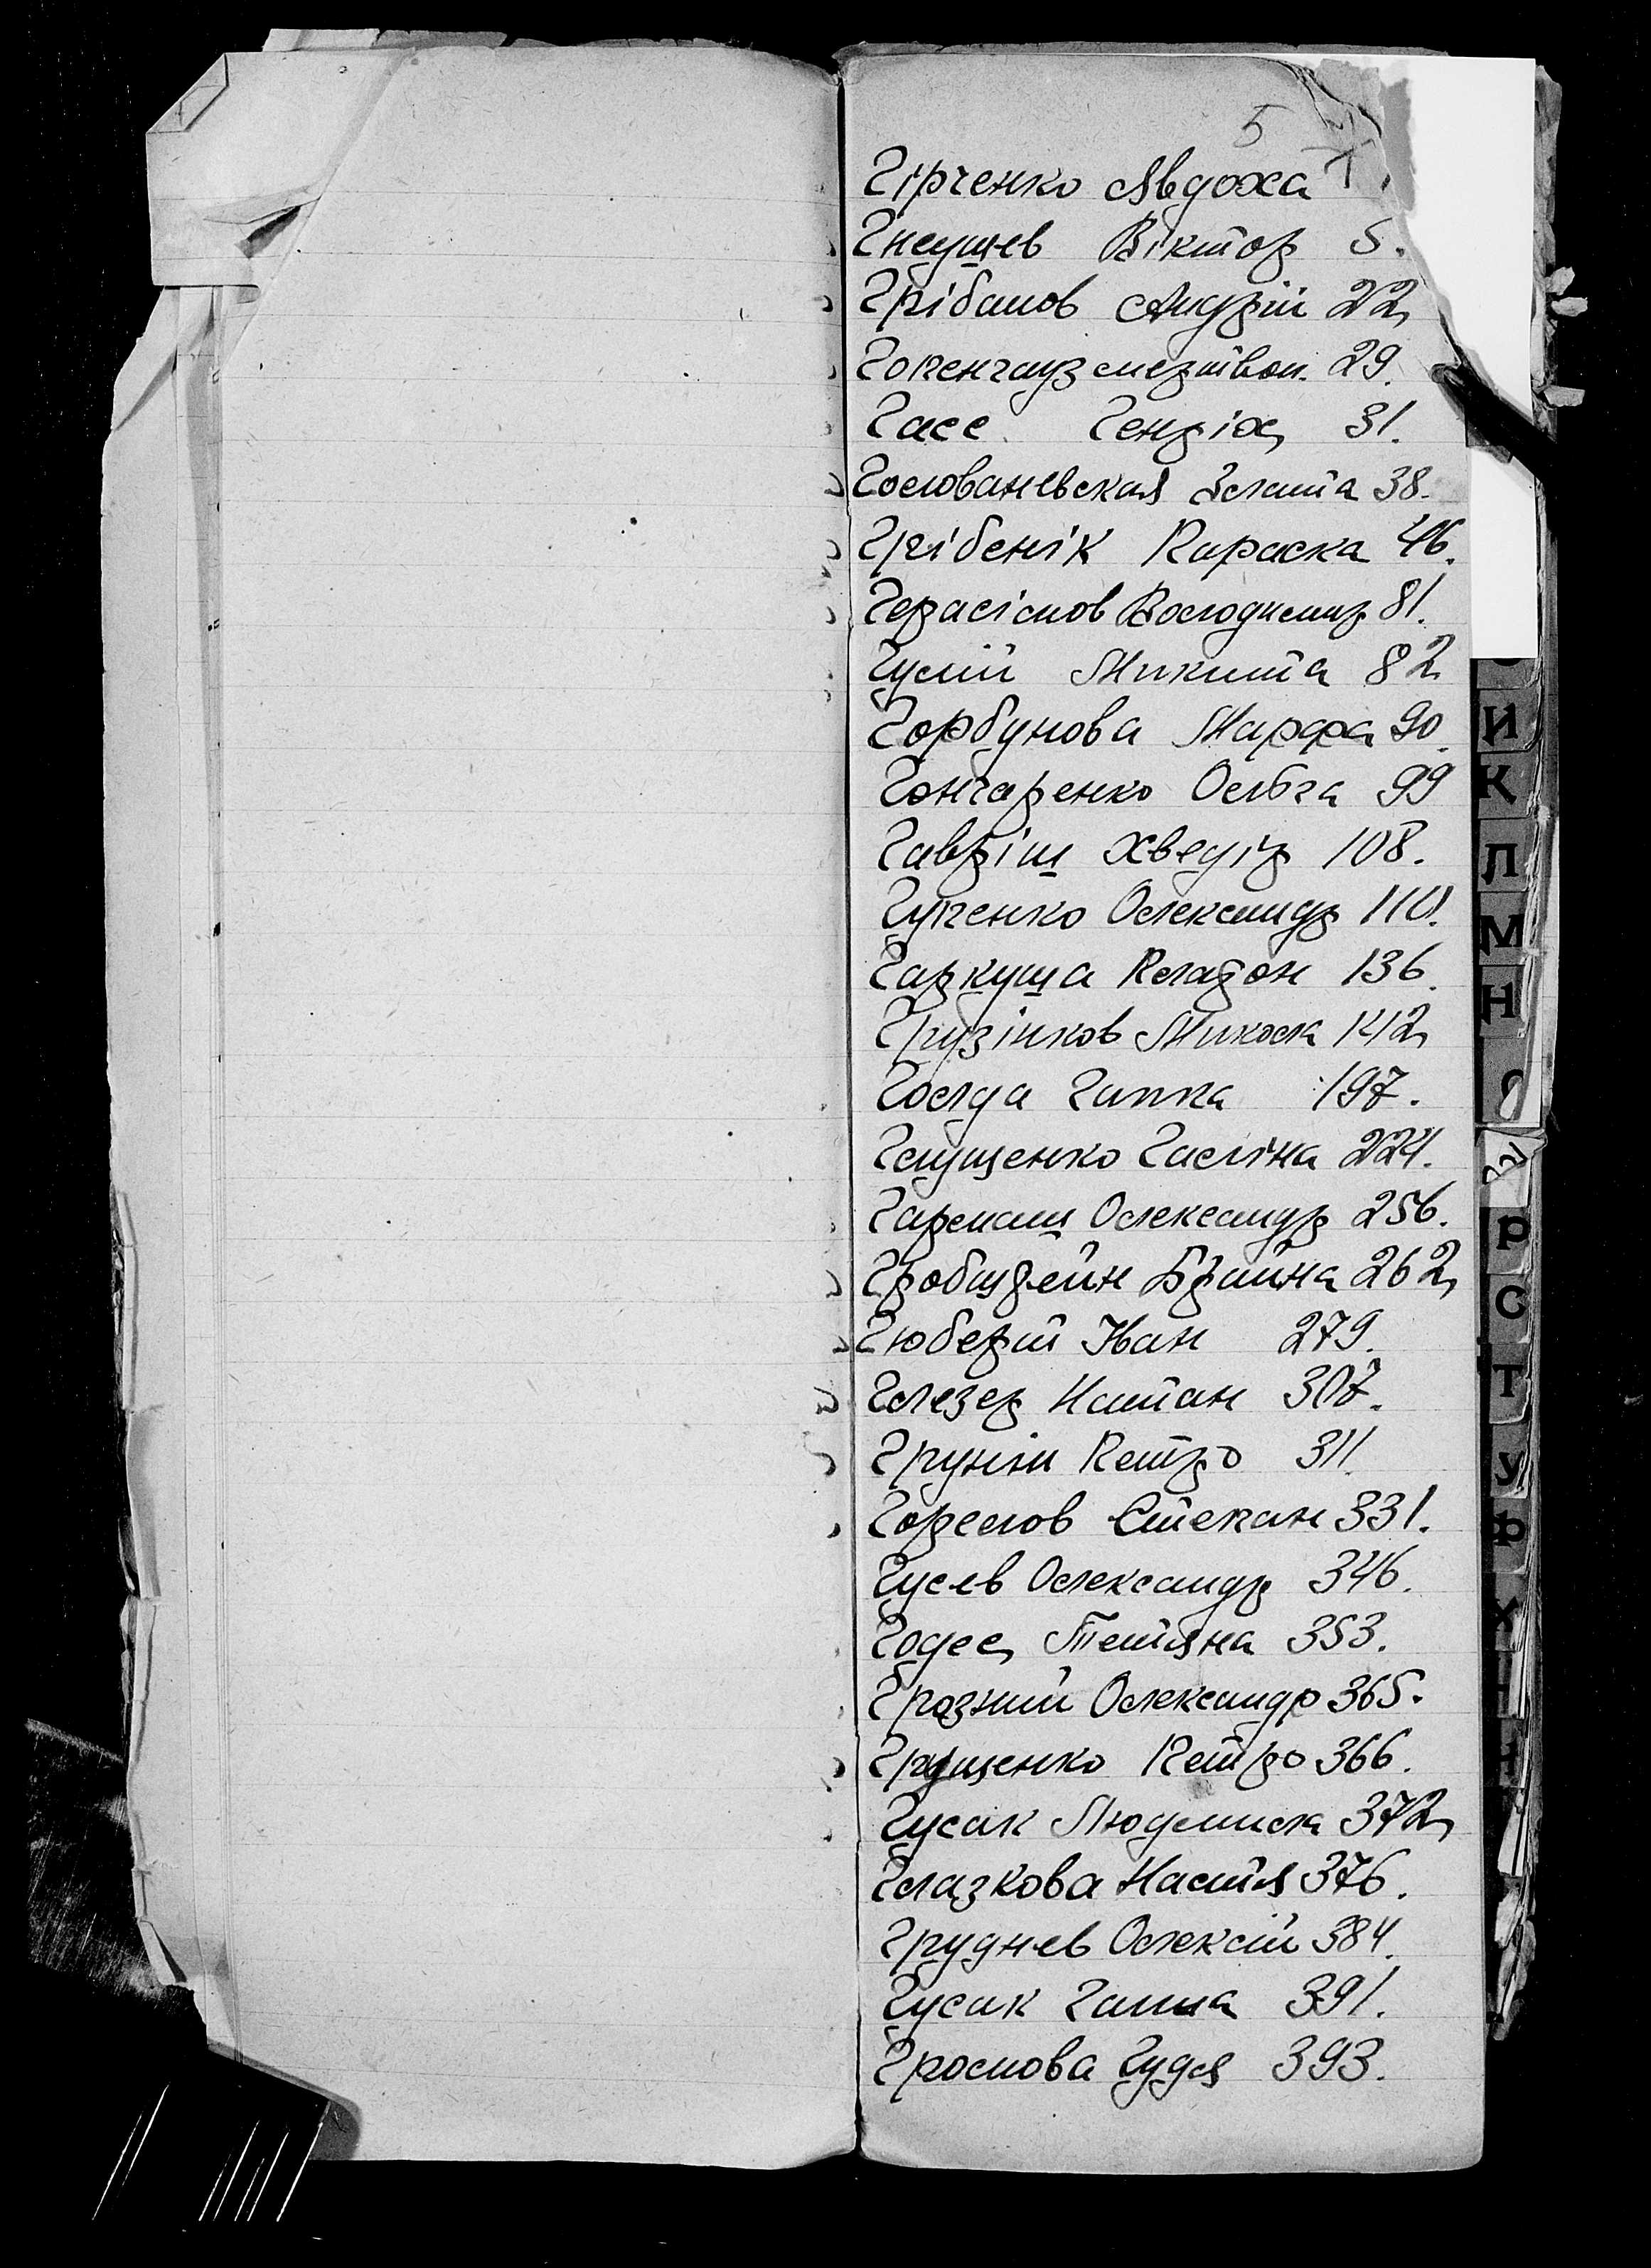 5
Гірченко Явдоха 1.
Гнеушев Віктор 5.
Грібанов Андрій 22
Гогенгауз мертвон. 29.
Гасс Генріх 31.
Голованевская Злата 38.
Грібенік Параска 46.
Герасімов Володимир 81.
Гулій Микита 82
Горбунова Марфа 90.
Гончаренко Ольга 99
Гавріш Хведір 108.
Гученко Олександр 110.
Гаркуша Платон 136.
Грузінков Микола 142
Голда Ганна 197.
Глущенко Галіна 224.
Гармаш Олександр 256.
Гробштейн Брайна 262
Гюберт Іван 279.
Глезер Натан 307.
Грунін Петро 311.
Горелов Степан 331.
Гусев Олександр 346.
Годес Тетяна 353.
Грозний Олександр 365.
Грищенко Петро 366.
Гусак Людмила 372
Глазкова Настя 376.
Груднев Олексій 384.
Гусак Ганна 391.
Громова Гудя 393.
И
К
Л
М
Н
О
Р
С
Т
У
Ф
Х